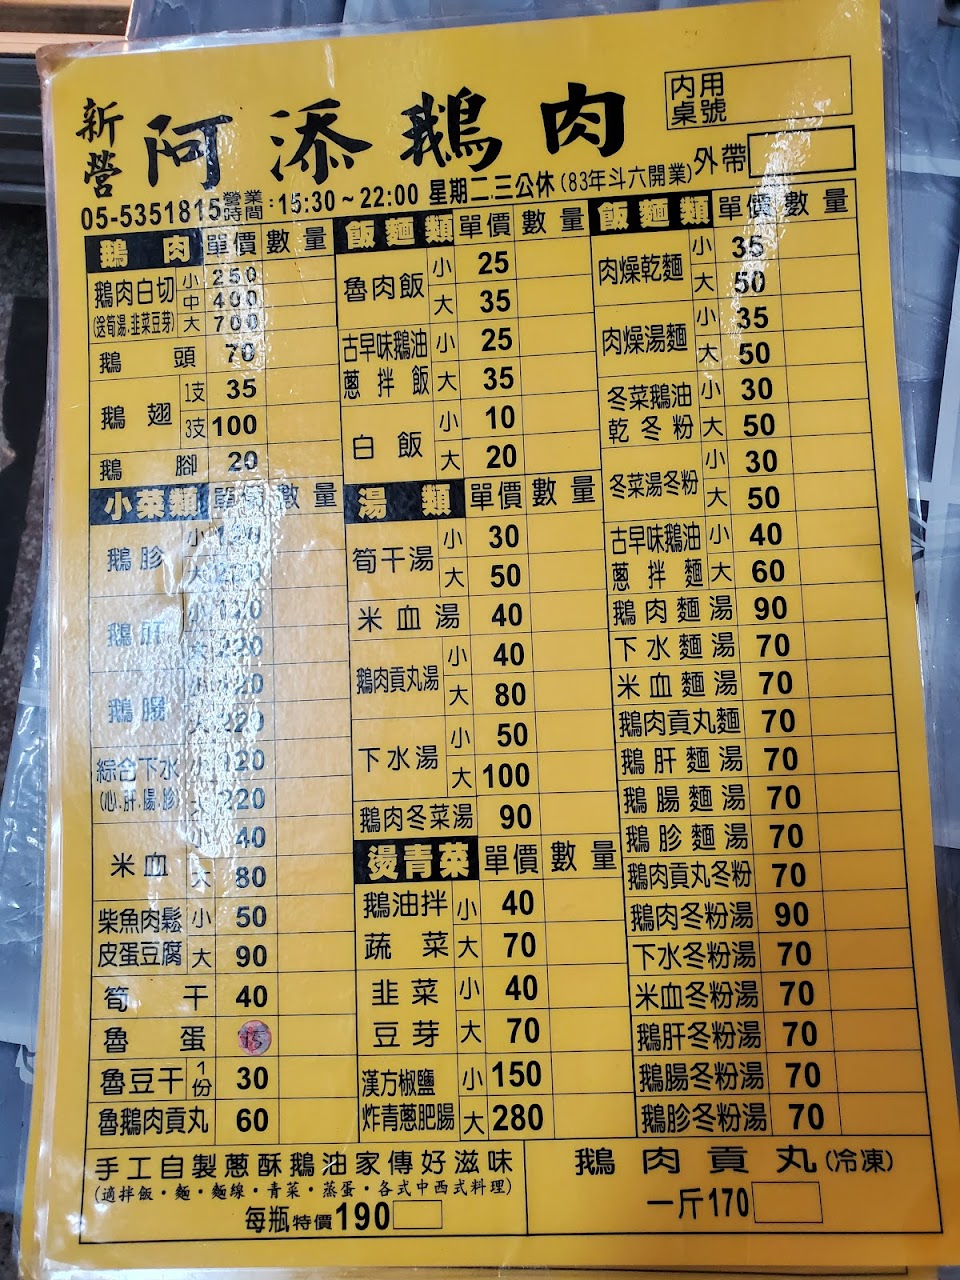 新營 阿添鵝肉
內用桌號
外帶
05-5351815 營業時間:15:30~22:00 星期二.三公休(83年斗六開業)
鵝肉 單價 數量
鵝肉白切 小 250
(送筍湯.韭菜豆芽) 中 400
大 700
鵝頭 70
鵝翅 1支 35
3支 100
鵝腳 20
小菜類 單價 數量
鵝胗 小
大
鵝肝 小 120
大 220
鵝腸 小 120
大 220
綜合下水 小 120
(心.肝.腸.胗) 大 220
米血 小 40
大 80
柴魚肉鬆皮蛋豆腐 小 50
大 90
筍干 40
魯蛋 15
魯豆干 1份 30
魯鵝肉貢丸 60
飯麵類 單價 數量
魯肉飯 小 25
大 35
古早味鵝油蔥拌飯 小 25
大 35
白飯 小 10
大 20
湯類 單價 數量
筍干湯 小 30
大 50
米血湯 40
鵝肉貢丸湯 小 40
大 80
下水湯 小 50
大 100
鵝肉冬菜湯 90
燙青菜 單價 數量
鵝油拌蔬菜 小 40
大 70
韭菜豆芽 小 40
大 70
漢方椒鹽炸青蔥肥腸 小 150
大 280
飯麵類 單價 數量
肉燥乾麵 小 35
大 50
肉燥湯麵 小 35
大 50
冬菜鵝油乾冬粉 小 30
大 50
冬菜湯冬粉 小 30
大 50
古早味鵝油蔥拌麵 小 40
大 60
鵝肉麵湯 90
下水麵湯 70
米血麵湯 70
鵝肉貢丸麵 70
鵝肝麵湯 70
鵝腸麵湯 70
鵝胗麵湯 70
鵝肉貢丸冬粉 70
鵝肉冬粉湯 90
下水冬粉湯 70
米血冬粉湯 70
鵝肝冬粉湯 70
鵝腸冬粉湯 70
鵝胗冬粉湯 70
手工自製蔥酥鵝油家傳好滋味
(適拌飯·麵·麵線·青菜·蒸蛋·各式中西式料理)
每瓶特價190
鵝肉貢丸(冷凍)
一斤170